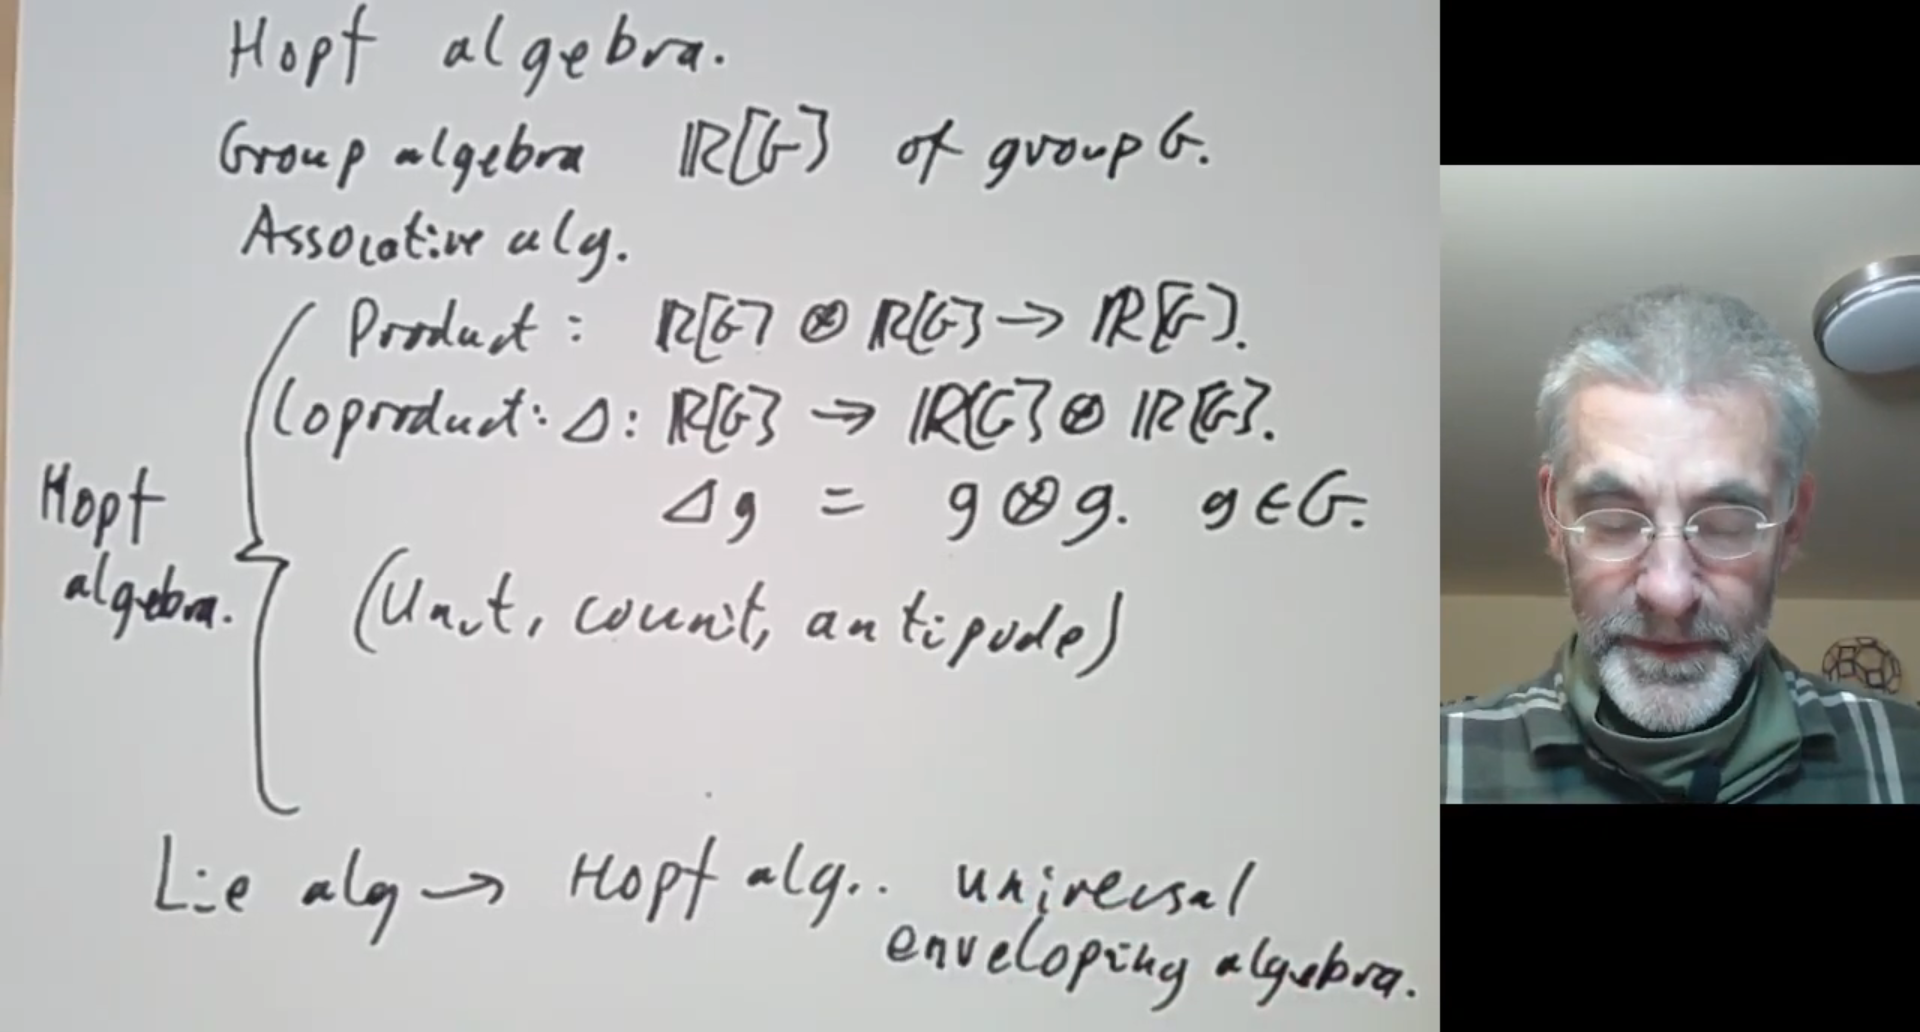 Hopf algebra.
Group algebra ℝ[G] of group G.
Assocative alg.
Product: ℝ[G] ⊗ ℝ[G] → ℝ[G].
Coproduct: Δ: ℝ[G] → ℝ[G] ⊗ ℝ[G].
Δg = g ⊗ g. g ∈ G.
Hopf
algebra.
(Unit, counit, antipode)
Lie alg → Hopf alg.. universal
enveloping algebra.